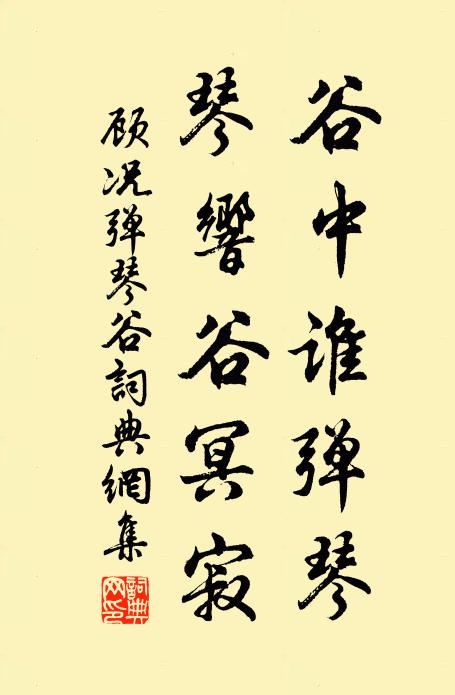 谷中谁弹琴
琴響谷冥寂
顾况弹琴谷詞典網集
詞典网印